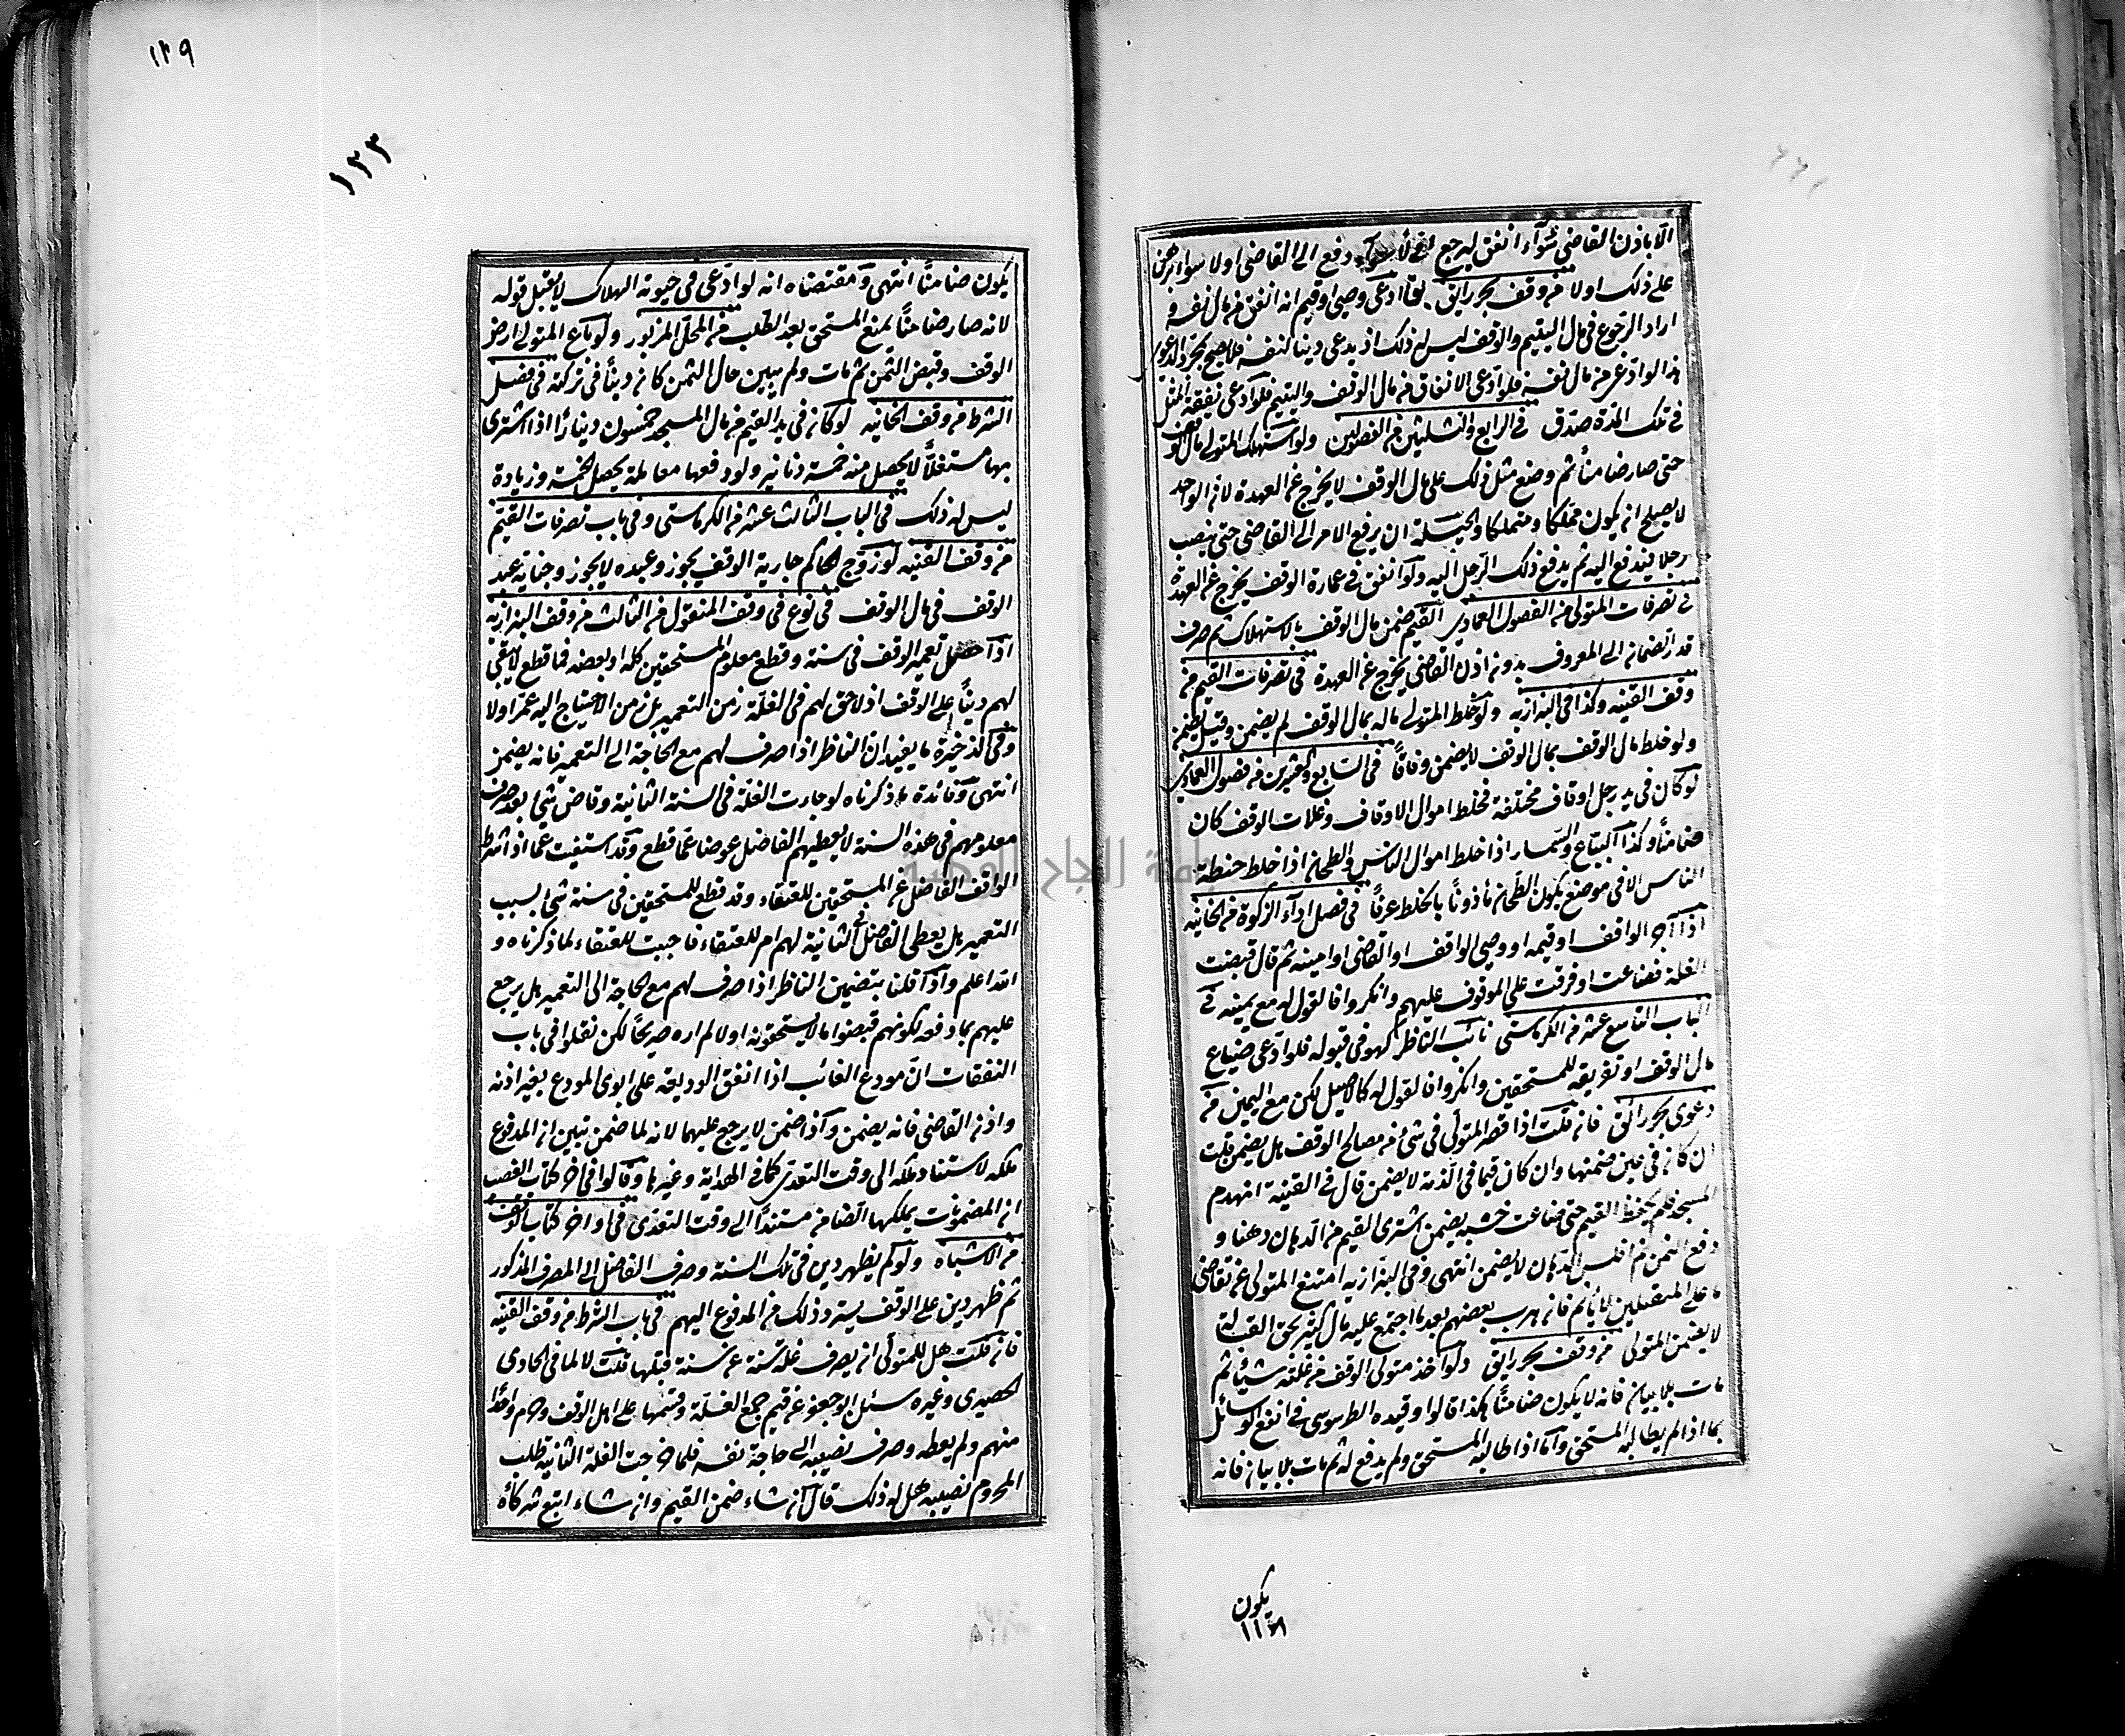 الا باذن القاضي سواء انفق ليرجع دفع الى القاضي اولا سواء برهن
على ذلك اولا من وقف بحر رائق لو ادعى وصي او قيم انه انفق من مال نفسه و
اراد الرجوع في مال اليتيم والوقف ليس له ذلك اذ يدعى دينا لنفسه فلا يصح بمجرد الدعوى
هذا لو ادعى من مال نفسه فلو ادعى الانفاق من مال الوقف واليتيم فلو ادعى نفقة المثل
في تلك المدة صدق في الرابع والثلثين من الفصولين ولو استهلك المتولي مال الوقف
حتى صار ضامنا ثم وضع مثل ذلك على مال الوقف لا يخرج عن العهدة لان الواحد
لا يصلح ان يكون مملكا ومتملكا والحيلة ان يرفع الامر الى القاضي حتى ينصب
رجلا فيدفع اليه ثم يدفع ذلك الرجل اليه ولو انفق في عمارة الوقف يخرج عن العهدة
في تصرفات المتولي من الفصول العمادي القيم ضمن مال الوقف بالاستهلاك ثم صرف
قدر الضمان الى المعروف بدون اذن القاضي يخرج عن العهدة في تصرفات القيم من
وقف القنيه وكذا في البزازيه ولو خلط المتولي ماله بمال الوقف لم يضمن وقيل يضمن
ولو خلط مال الوقف بمال الوقف لا يضمن وفاقا في السابع والعشرين من فصول العمادي
لو كان في يد رجل اوقاف مختلفة فخلط اموال الاوقاف وغلات الوقف كان
ضامنا وكذا البياع والسمسار اذا خلط اموال الناس والطحان اذا خلط حنطة
الناس الا في موضع يكون الطحان ماذونا بالخلط عرفا في فصل اداء الزكوة من الخانيه
اذا آجر الواقف او قيمه او وصي الواقف او القاضي او امينه ثم قال قبضت
الغلة فضاعت او فرقت على الموقوف عليهم وانكروا فالقول له مع يمينه في
الباب التاسع عشر من الكرماستي نائب الناظر كهو في قبوله فلو ادعى ضياع
مال الوقف او تفريقه للمستحقين وانكروا فالقول له كالاصيل لكن مع اليمين من
دعوى بحر رائق فان قلت اذا قصر المتولي في شئ من مصالح الوقف هل يضمن قلت
ان كان في عين ضمنها وان كان فيما في الذمة لا يضمن قال في القنية انهدم
المسجد فلم يحفظ القيم حتى ضاعت خشبه يضمن اشترى القيم من الدهان دهنا و
دفع الثمن ثم افلس الدهان لا يضمن انتهى وفي البزازيه امتنع المتولي عن تقاضي
ما على المتقبلين لا ياثم فان هرب بعضهم بعد ما اجتمع عليه مال كثير بحق القبالة
لا يضمن المتولي من وقف بحر رايق ولو اخذ متولي الوقف من غلته شيئا ثم
مات بلا بيان فانه لا يكون ضامنا هكذا قالوا وقيده الطرسوسي في انفع الوسائل
بما اذا لم يطالبه المستحق واما اذا طالبه المستحق ولم يدفع له ثم مات بلا بيان فانه
يكون
١٣٩
١٢٣
يكون ضامنا انتهى ومقتضاه انه لو ادعى في حيوته الهلاك لا يقبل قوله
لانه صار ضامنا بمنع المستحق بعد الطلب من المحل المزبور ولو باع المتولي ارض
الوقف وقبض الثمن ثم مات ولم يبين حال الثمن كان دينا في تركته في فصل
الشرط من وقف الخانيه لو كان في يد القيم من مال المسجد خمسون دينارا اذا اشترى
بها مستغلا لا يحصل منه خمسة دنانير ولو دفعها معاملة يحصل الخمسة وزيادة
ليس له ذلك في الباب الثالث عشر من الكرماستي وفي باب تصرفات القيم
من وقف القنيه لو زوج الحاكم جارية الوقف يجوز وعبده لا يجوز وجناية عبد
الوقف في مال الوقف في نوع في وقف المنقول من الثالث من وقف البزازيه
اذا حصل تعمير الوقف في سنة وقطع معلوم المستحقين كله او بعضه فما قطع لا يبقى
لهم دينا على الوقف اذ لا حق لهم في الغلة زمن التعمير بل زمن الاحتياج اليه عمر اولا
وفي الذخيرة ما يفيد ان الناظر اذا صرف لهم مع الحاجة الى التعمير فانه يضمن
انتهى وفائدة ما ذكرناه لو جاءت الغلة في السنة الثانية وفاض شئ بعد صرف
معلومهم في هذه السنة لا يعطيهم الفاضل عوضا عما قطع وقد استفتيت عما اذا شرط
الواقف الفاضل عن المستحقين للعتقاء وقد قطع للمستحقين في سنة شئ بسبب
التعمير هل يعطى الفاضل في الثانية لهم ام للعتقاء فاجبت للعتقاء لما ذكرناه و
الله اعلم واذا قلنا بتضمين الناظر اذا صرف لهم مع الحاجة الى التعمير هل يرجع
عليهم بما دفعه لكونهم قبضوا ما لا يستحقونه اولا لم اره صريحا لكن نقلوا في باب
النفقات ان مودع الغائب اذا انفق الوديعة على ابوي المودع بغير اذنه
واذن القاضي فانه يضمن واذا ضمن لا يرجع عليهما لانه لما ضمن تبين ان المدفوع
ملكه لاستناد ملكه الى وقت التعدي كما في الهداية وغيرها وقالوا في آخر كتاب الغصب
ان المضمونات يملكها الضامن مستندا الى وقت التعدي في اواخر كتاب الوقف
من الاشباه ولو لم يظهر دين في تلك السنة وصرف الفاضل الى المصرف المذكور
ثم ظهر دين على الوقف يسترد ذلك من المدفوع اليهم في باب الشرط من وقف القنيه
فان قلت هل للمتولي ان يصرف غلة سنة عن سنة قبلها قلت لا لما في الحاوي
الحصيري وغيره سئل ابو جعفر عن قيم جمع الغلة وقسمها على اهل الوقف وحرم واحدا
منهم ولم يعطه وصرف نصيبه الى حاجة نفسه فلما خرجت الغلة الثانية طلب
المحروم نصيبه هل له ذلك قال ان شاء ضمن القيم وان شاء اتبع شركاءه